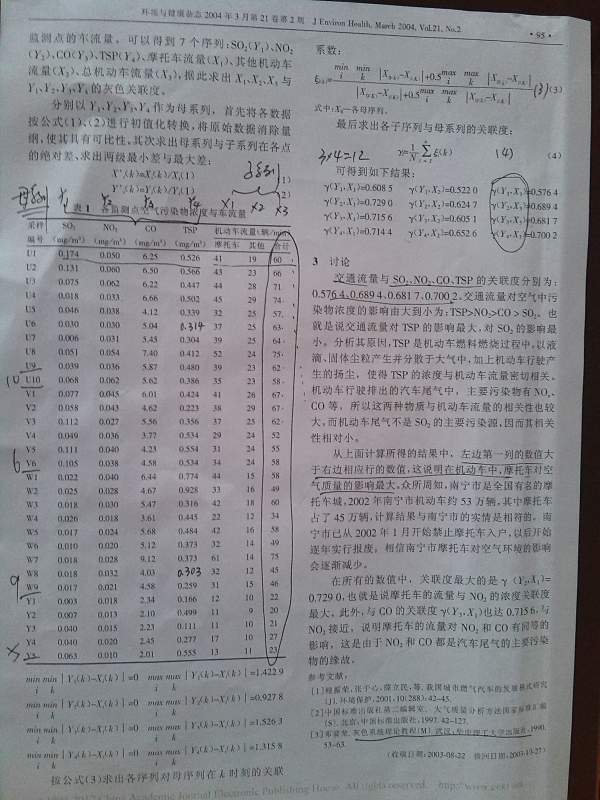 环境与健康杂志 2004 年 3 月第 21 卷第 2 期 J Environ Health, March 2004, Vol.21, No.2
·95·
监测点的车流量,可以得到 7 个序列:SO₂(Y₁)、NO₂
(Y₂)、CO(Y₃)、TSP(Y₄)、摩托车流量(X₁)、其他机动车
流量(X₂)、总机动车流量(X₃),据此求出 X₁、X₂、X₃ 与
Y₁、Y₂、Y₃、Y₄ 的灰色关联度。
分别以 Y₁、Y₂、Y₃、Y₄ 作为母系列,首先将各数据
按公式(1)、(2)进行初值化转换,将原始数据消除量
纲,使其具有可比性,其次求出母系列与子系列在各点
的绝对差、求出两级最小差与最大差:
X′ᵢ(k)=Xᵢ(k)/Xᵢ(1) (1)
Y′ᵢ(k)=Yᵢ(k)/Yᵢ(1) (2)
母系列 Y₁ Y₂ Y₃ Y₄ X₁ X₂ X₃
表 1 各监测点空气污染物浓度与车流量
采样 SO₂ NO₂ CO TSP 机动车流量(辆/min)
编号 (mg/m³) (mg/m³) (mg/m³) (mg/m³) 摩托车 其他 合计
U1 0.174 0.050 6.25 0.526 41 19 60
U2 0.131 0.060 6.50 0.566 43 23 66
U3 0.075 0.062 6.22 0.447 44 28 71
U4 0.018 0.033 6.66 0.502 45 29 74
U5 0.046 0.038 4.12 0.339 32 25 57
U6 0.030 0.030 5.04 0.314 37 25 63
U7 0.006 0.031 5.45 0.304 39 25 64
U8 0.051 0.054 7.40 0.412 52 24 75
U9 0.039 0.036 5.87 0.480 39 23 62
10 U10 0.068 0.062 5.62 0.386 35 23 58
V1 0.077 0.045 6.01 0.424 41 26 67
V2 0.058 0.043 4.62 0.223 38 29 67
V3 0.112 0.027 5.56 0.356 37 25 62
V4 0.049 0.036 3.77 0.534 29 24 52
V5 0.111 0.040 4.23 0.554 31 24 55
6 V6 0.105 0.038 4.58 0.534 34 24 58
W1 0.022 0.040 6.44 0.774 44 15 58
W2 0.025 0.028 4.67 0.928 33 16 49
W3 0.018 0.030 5.47 0.316 42 18 60
W4 0.026 0.018 3.61 0.445 22 12 34
W5 0.017 0.024 5.68 0.484 42 16 58
W6 0.010 0.020 5.12 0.373 32 14 49
W7 0.018 0.028 9.12 0.373 61 14 75
W8 0.018 0.032 4.03 0.303 32 12 45
9 W9 0.017 0.021 4.58 0.259 31 15 46
Y1 0.003 0.018 2.34 0.166 12 10 22
Y2 0.007 0.013 2.10 0.499 11 9 20
Y3 0.040 0.015 2.23 0.111 10 11 21
Y4 0.040 0.020 2.45 0.277 17 10 27
0.063 0.010 2.01 0.555 13 11 23
min min |Y₁(k)-Xᵢ(k)|=0 max max |Y₁(k)-Xᵢ(k)|=1.422 9
i k i k
min min |Y₂(k)-Xᵢ(k)|=0 max max |Y₂(k)-Xᵢ(k)|=0.927 8
i k i k
min min |Y₃(k)-Xᵢ(k)|=0 max max |Y₃(k)-Xᵢ(k)|=1.526 3
i k i k
min min |Y₄(k)-Xᵢ(k)|=0 max max |Y₄(k)-Xᵢ(k)|=1.315 8
i k i k
按公式(3)求出各序列对母序列在 k 时刻的关联
系数:
(3)
式中:X₀—各母序列.
最后求出各子序列与母系列的关联度:
3×4=12 (4) (4)
可得到如下结果:
γ(Y₁,X₁)=0.608 5 γ(Y₁,X₂)=0.522 0 γ(Y₁,X₃)=0.576 4
γ(Y₂,X₁)=0.729 0 γ(Y₂,X₂)=0.624 7 γ(Y₂,X₃)=0.689 4
γ(Y₃,X₁)=0.715 6 γ(Y₃,X₂)=0.605 1 γ(Y₃,X₃)=0.681 7
γ(Y₄,X₁)=0.714 4 γ(Y₄,X₂)=0.652 6 γ(Y₄,X₃)=0.700 2
3 讨论
交通流量与 SO₂、NO₂、CO、TSP 的关联度分别为:
0.576 4、0.689 4、0.681 7、0.700 2。交通流量对空气中污
染物浓度的影响由大到小为:TSP>NO₂>CO>SO₂。也
就是说交通流量对 TSP 的影响最大,对 SO₂ 的影响最
小。分析其原因,TSP 是机动车燃料燃烧过程中,以液
滴、固体尘粒产生并分散于大气中,加上机动车行驶产
生的扬尘,使得 TSP 的浓度与机动车流量密切相关。
机动车行驶排出的汽车尾气中,主要污染物有 NOₓ、
CO 等,所以这两种物质与机动车流量的相关性也较
大,而机动车尾气不是 SO₂ 的主要污染源,因而其相关
性相对小。
从上面计算所得的结果中,左边第一列的数值大
于右边相应行的数值,这说明在机动车中,摩托车对空
气质量的影响最大。众所周知,南宁市是全国有名的摩
托车城,2002 年南宁市机动车约 53 万辆,其中摩托车
占了 45 万辆,计算结果与南宁市的实情是相符的。南
宁市已从 2002 年 1 月开始禁止摩托车入户,以后开始
逐年实行报废。相信南宁市摩托车对空气环境的影响
会逐渐减少。
在所有的数值中,关联度最大的是 γ(Y₂,X₁)=
0.729 0,也就是说摩托车的流量与 NO₂ 的浓度关联度
最大。此外,与 CO 的关联度 γ(Y₃,X₁)也达 0.715 6,与
NO₂ 接近。说明摩托车的流量对 NO₂ 和 CO 有同等的
影响。这是由于 NO₂ 和 CO 都是汽车尾气的主要污染
物的缘故。
参考文献:
[J].环境保护,2001,10(288):42-45.
[S].北京,中国标准出版社,1997.42-127.
[3]邓聚龙.灰色系统理论教程[M].武汉:华中理工大学出版社,1990.
53-63.
(收稿日期:2003-08-22 修回日期:2003-10-27)
China Academic Journal Electronic Publishing House. All rights reserved.